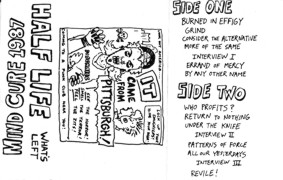 MIND CURE 1987
HALF LIFE
WHATS LEFT
IT
CAME
FROM
PITTSBURGH!
SIDE ONE
BURNED IN EFFIGY
GRIND
CONSIDER THE ALTERNATIVE
MORE OF THE SAME
INTERVIEW I
ERRAND OF MERCY
BY ANY OTHER NAME
SIDE TWO
WHO PROFITS?
RETURN TO NOTHING
UNDER THE KNIFE
INTERVIEW II
PATTERNS OF FORCE
ALL OUR YESTERDAYS
INTERVIEW III
REVILE!